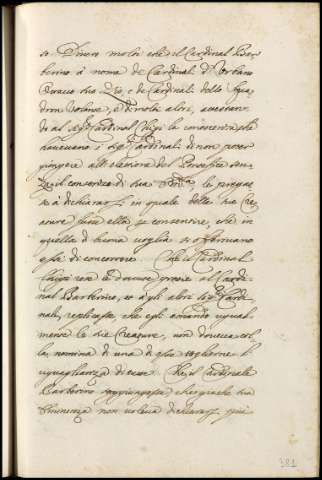 so. Dicono molti che il Cardinal Bar=
berino à nome de Cardinali d'Urbano
Ottavo suo Zio, e de Cardinali dello Squa
dron Volante, e di molti altri, 
do al Sig.r Cardinal Chigi la conoscenza che
haueuano i Sig.ri Cardinali di non poter
giungere all'elettione del Pontefice sen=
za il consenso di sua Em.za, lo pregas
se à dichiararsi in quale delle sue Cre
ature fusse ella p consentire, che in
quella di buona voglia si offeriuano
essi di concorrere. Che il Cardinal
Chigi rese le douute gratie al Cardi
nal Barberino, et agli altri Sig.ri Cardi
nali, replicasse che egli amando ugual
mente le sue Creature, non doueua col
la nomina di una di esse togliere l'
uguaglianza di esse. Che il Cardinale
Barberino soggiungesse che giache sua
Eminenza non voleua dichiararsi più
381